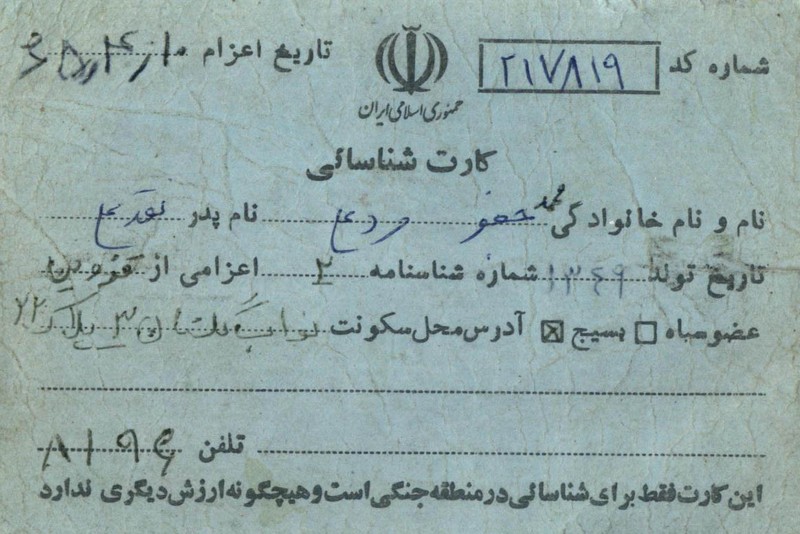 شماره کد ۲۱۷۸۱۹
تاریخ اعزام
جمهوری اسلامی ایران
کارت شناسائی
نام و نام خانوادگی محمد جعفر نام پدر
تاریخ تولد ۱۳۴۹ شماره شناسنامه ۲ اعزامی از قزوین
عضو سپاه بسیج آدرس محل سکونت پلاک ۷۲
تلفن
این کارت فقط برای شناسائی در منطقه جنگی است و هیچگونه ارزش دیگری ندارد